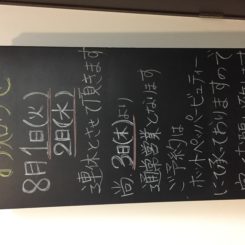 8月1日(火)
2日(水)
連休とさせて頂きます
尚、3日(木)より
通常営業となります
ご予約は
ホットペッパービューティー
にて承ておりますので